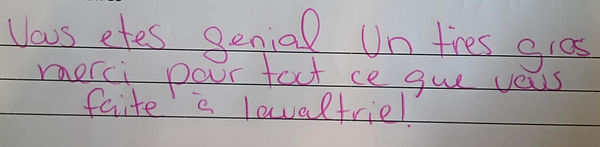 Vous etes genial Un tres gros
merci pour tout ce que vous
faite à lavaltrie!